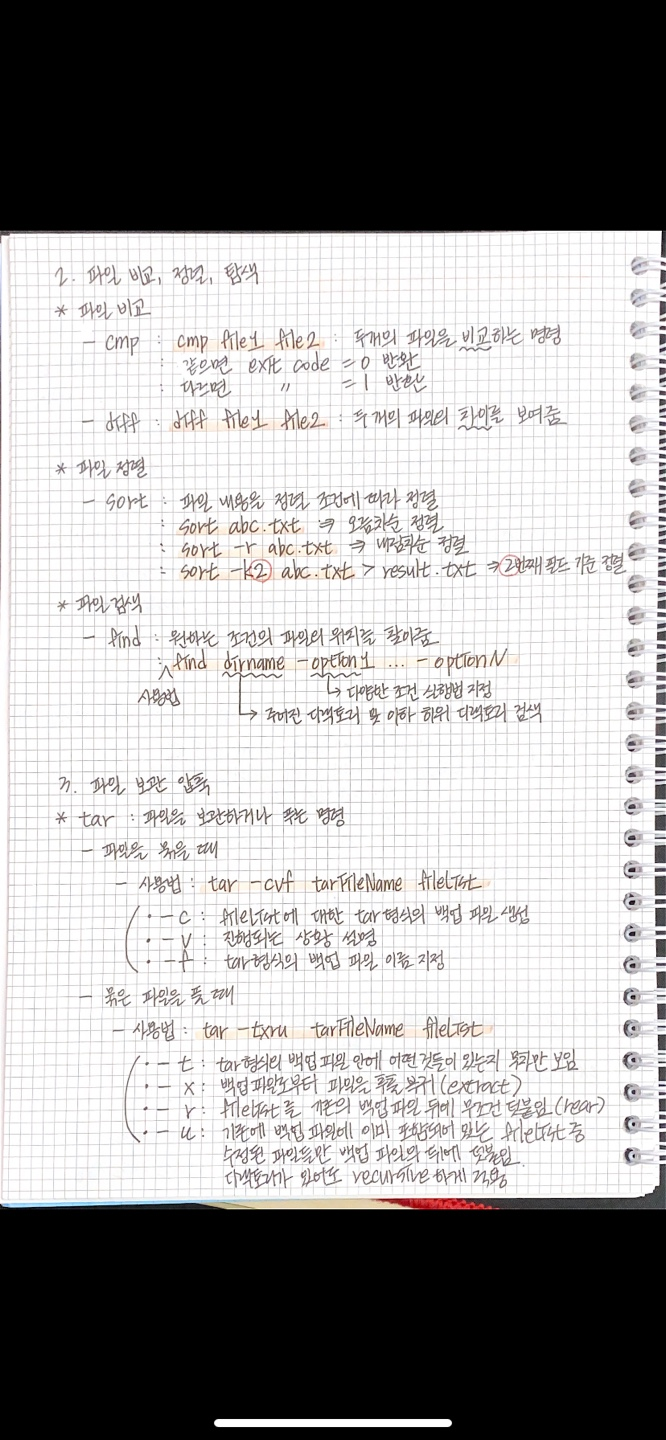 2. 파일 비교, 정렬, 탐색
* 파일 비교
- cmp : cmp file1 file2 : 두개의 파일을 비교하는 명령
: 같으면 exit code = 0 반환
: 다르면 〃 = 1 반환
- diff : diff file1 file2 : 두개의 파일의 차이를 보여줌
* 파일 정렬
- sort : 파일 내용을 정렬 조건에 따라 정렬
: sort abc.txt ⇒ 오름차순 정렬
: sort -r abc.txt ⇒ 내림차순 정렬
: sort -k2 abc.txt > result.txt ⇒ 2번째 필드 기준 정렬
* 파일 검색
- find : 원하는 조건의 파일의 위치를 찾아줌
: find dirname -option1 ... -optionN
사용법 → 다양한 조건 실행법 지정
→ 주어진 디렉토리 및 이하 하위 디렉토리 검색
3. 파일 보관 압축
* tar : 파일을 보관하거나 푸는 명령
- 파일을 묶을 때
- 사용법 : tar -cvf tarFileName fileList
· -c : fileList에 대한 tar형식의 백업 파일 생성
· -v : 진행되는 상황 설명
· -f : tar형식의 백업 파일 이름 지정
- 묶은 파일을 풀 때
- 사용법 : tar -txru tarFileName fileList
· -t : tar형식의 백업 파일 안에 어떤 것들이 있는지 목차만 보임
· -x : 백업 파일로부터 파일을 추출 복귀 (extract)
· -r : fileList를 기존의 백업 파일 뒤에 무조건 덧붙임 (rear)
· -u : 기존에 백업 파일에 이미 포함되어 있는 fileList 중
수정된 파일들만 백업 파일의 뒤에 덧붙임.
디렉토리가 있어도 recursive하게 적용